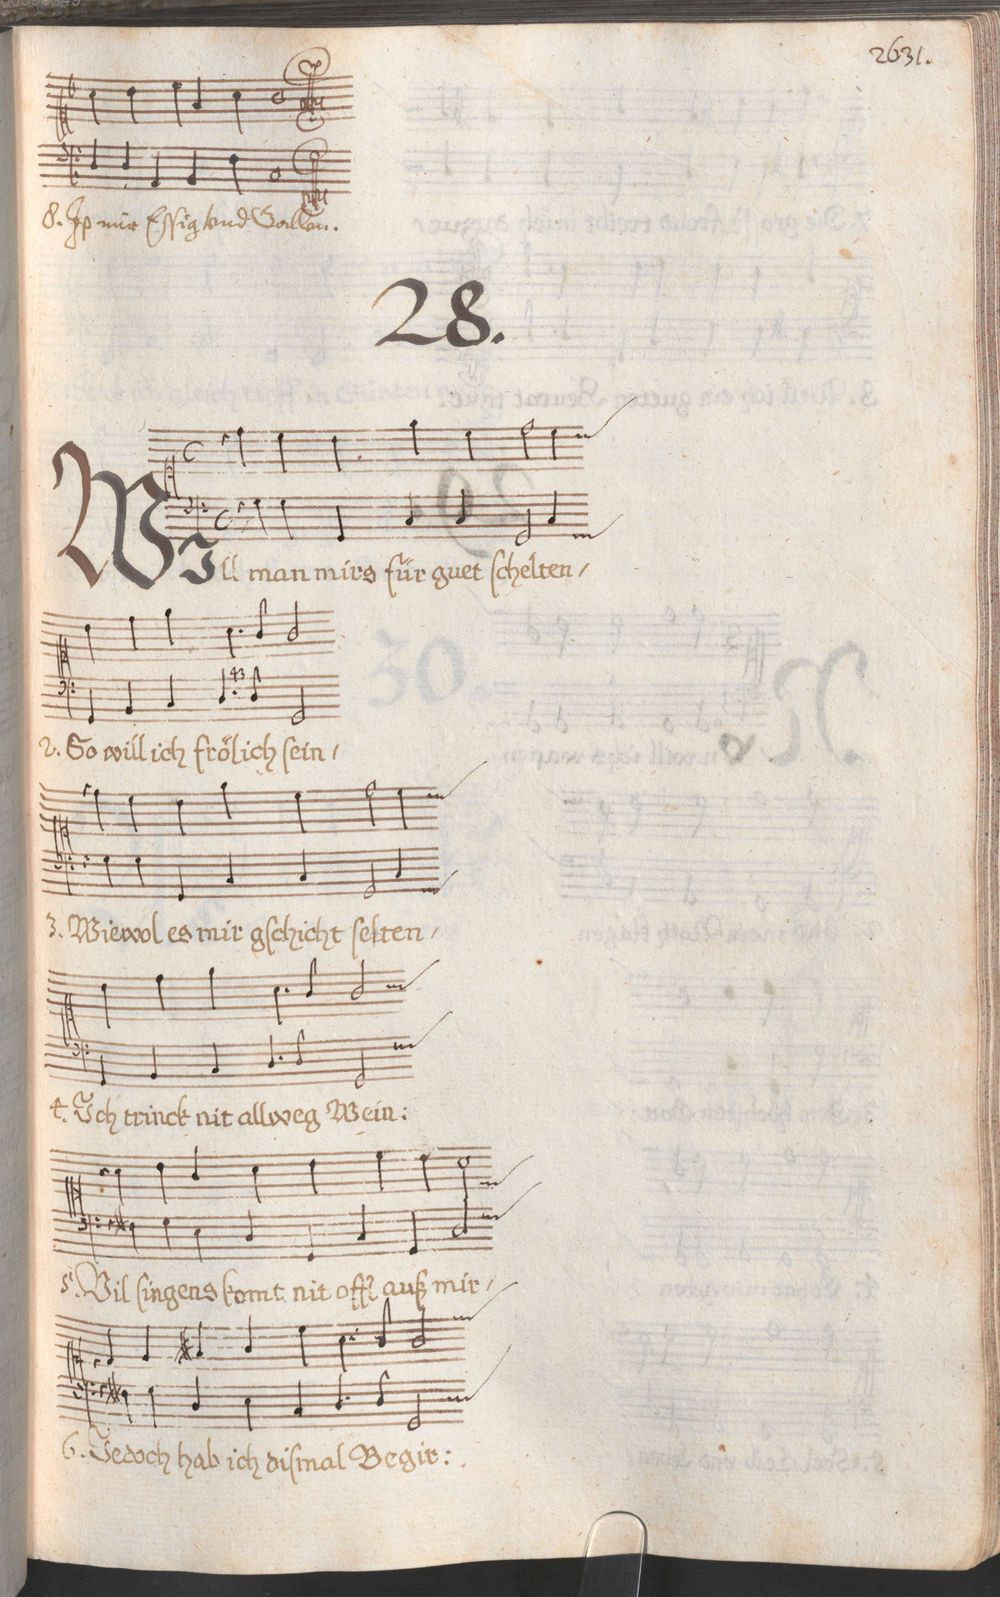 2631.
8. Ist mir Essig vnd Gallen.
28.
WIll man mirs für guet schelten /
2. So will ich frölich sein /
43
3. Wiewol es mir gschicht selten /
4. Ich trinck nit allweg Wein :
5. Vil singens komt nit offt auß mir /
6. Jedoch hab ich dismal Begir :